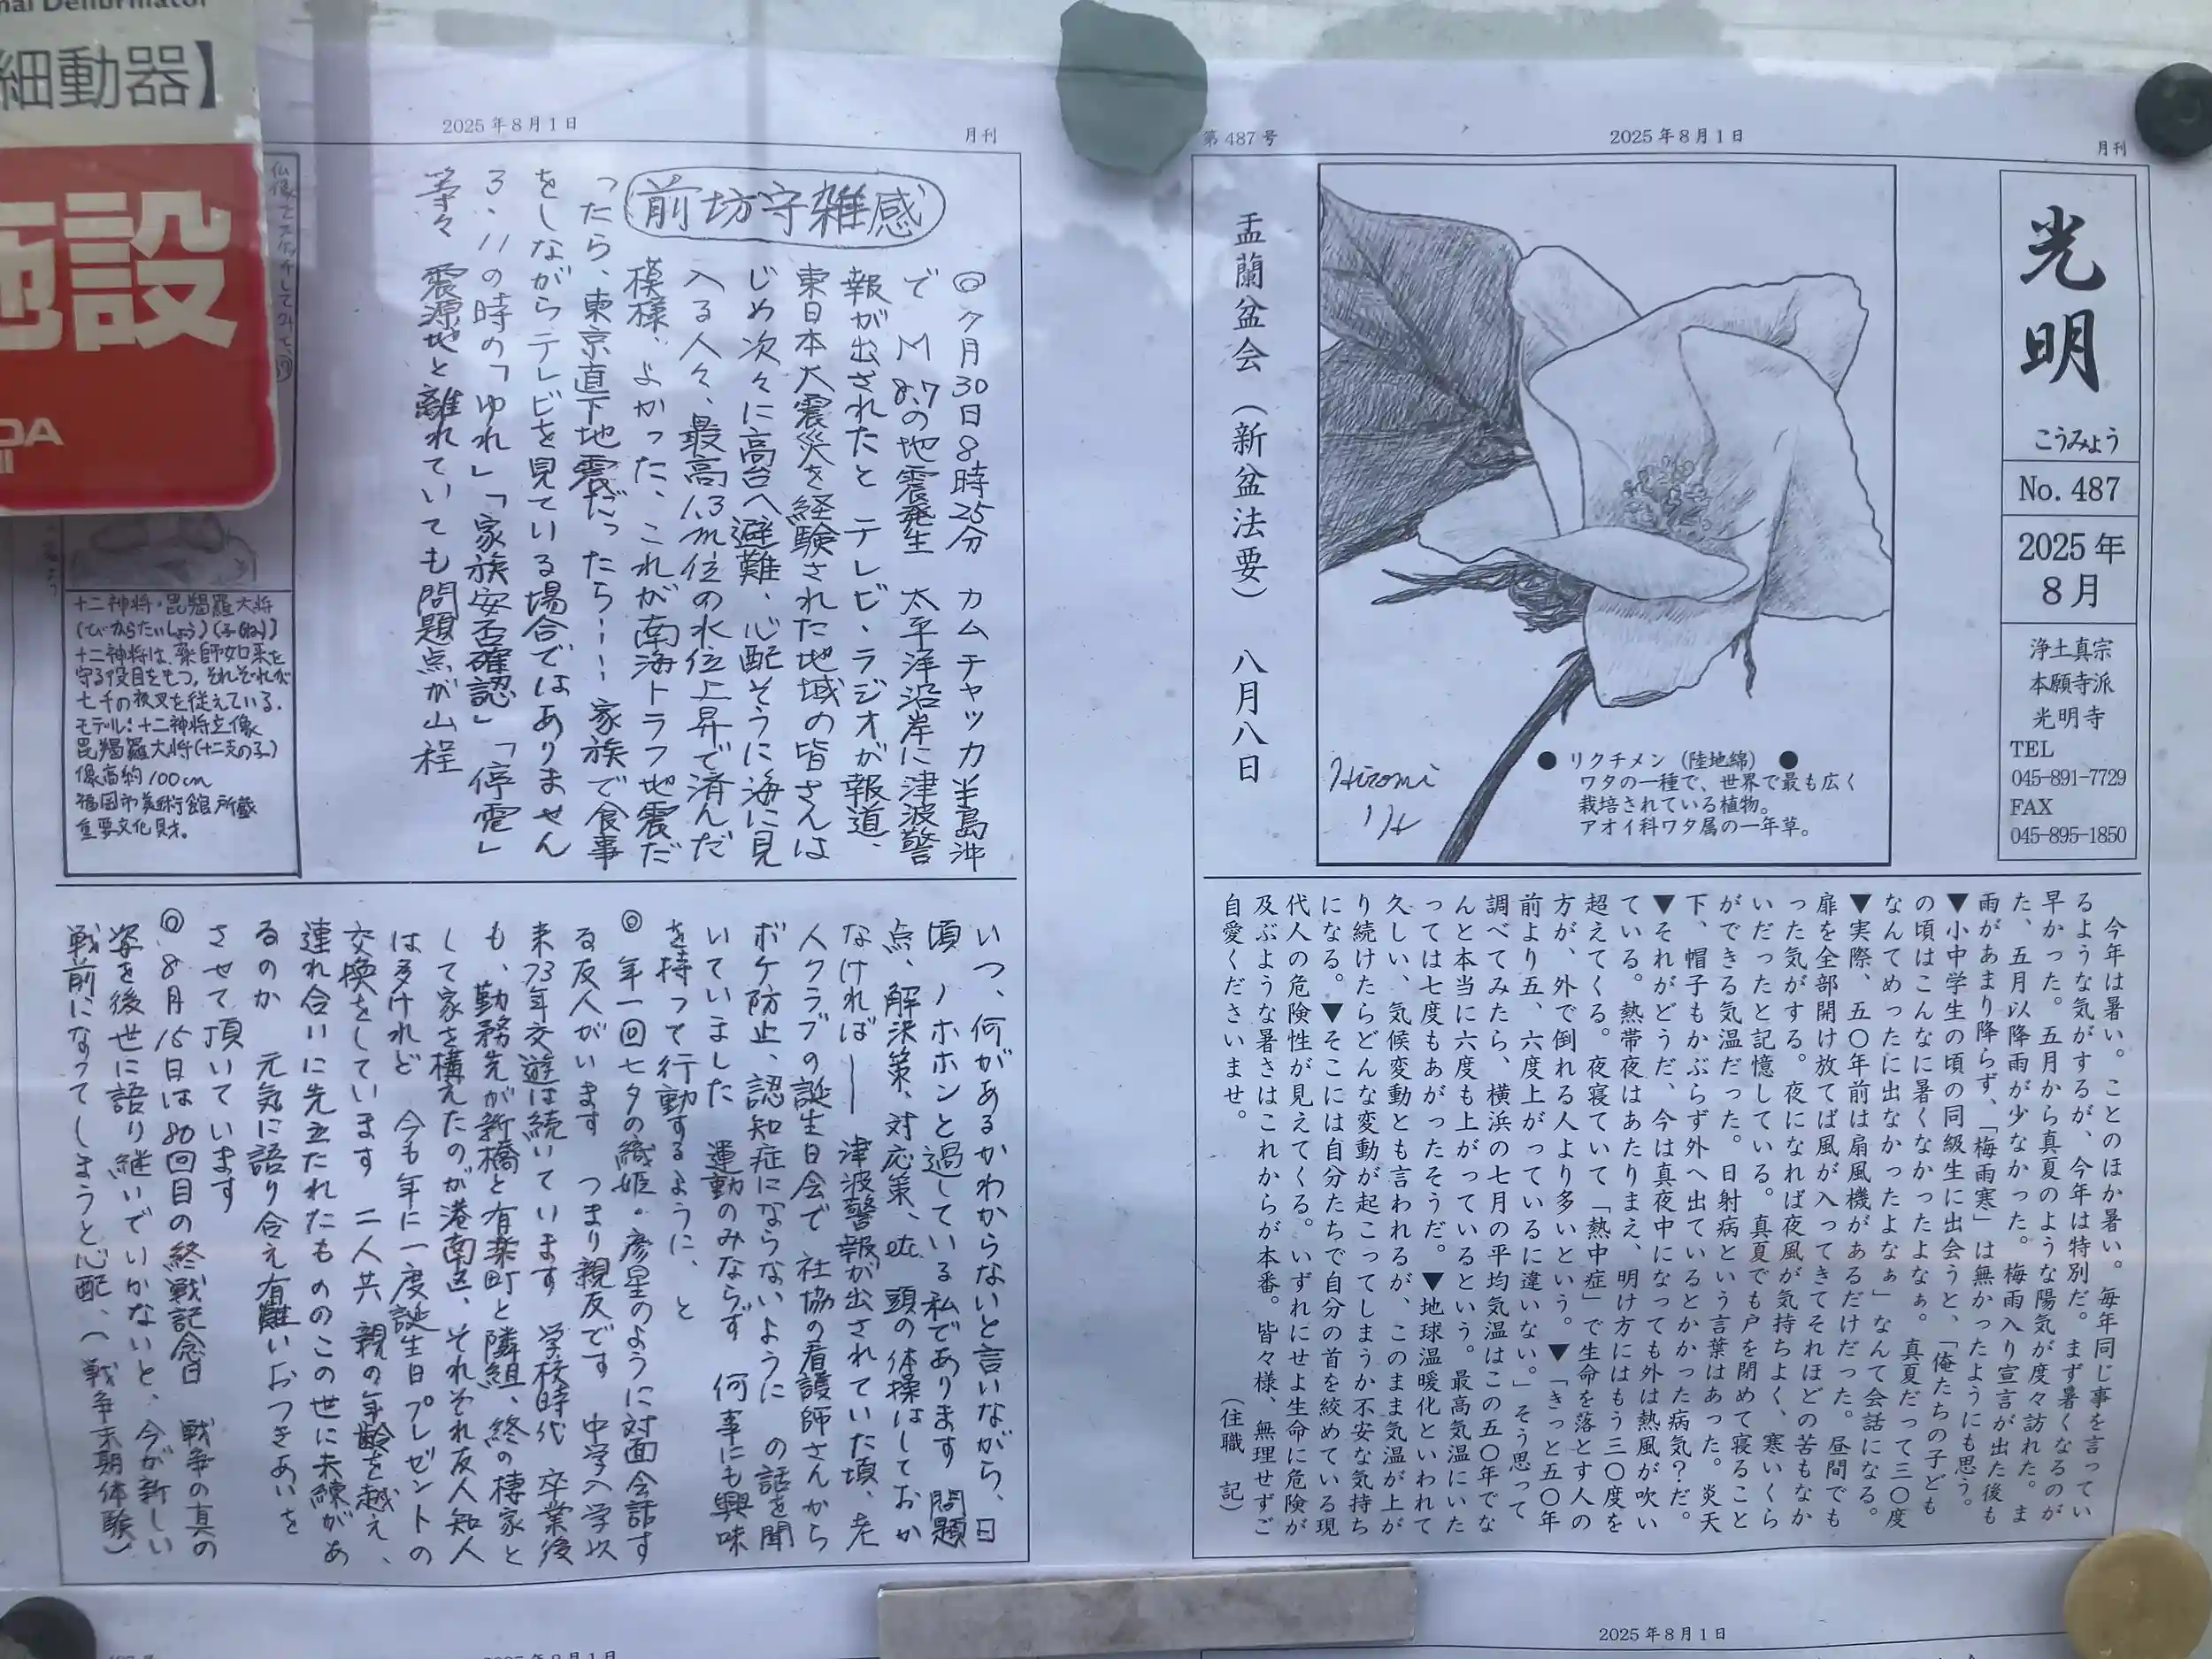 nal Defibrillator
細動器】
施設
第487号
2025年8月1日
月刊
光明
こうみょう
No. 487
2025年
8月
浄土真宗
本願寺派
光明寺
TEL
045-891-7729
FAX
045-895-1850
Hiromi
● リクチメン（陸地綿） ●
ワタの一種で、世界で最も広く
栽培されている植物。
アオイ科ワタ属の一年草。
盂蘭盆会（新盆法要） 八月八日
今年は暑い。ことのほか暑い。毎年同じ事を言ってい
るような気がするが、今年は特別だ。まず暑くなるのが
早かった。五月から真夏のような陽気が度々訪れた。ま
た、五月以降雨が少なかった。梅雨入り宣言が出た後も
雨があまり降らず、「梅雨寒」は無かったようにも思う。
▼小中学生の頃の同級生に出会うと、「俺たちの子ども
の頃はこんなに暑くなかったよなぁ。真夏だって三〇度
なんてめったに出なかったよなぁ」なんて会話になる。
▼実際、五〇年前は扇風機があるだけだった。昼間でも
扉を全部開け放てば風が入ってきてそれほどの苦もなか
った気がする。夜になれば夜風が気持ちよく、寒いくら
いだったと記憶している。真夏でも戸を閉めて寝ること
ができる気温だった。日射病という言葉はあった。炎天
下、帽子もかぶらず外へ出ているとかかった病気？だ。
▼それがどうだ、今は真夜中になっても外は熱風が吹い
ている。熱帯夜はあたりまえ、明け方にはもう三〇度を
超えてくる。夜寝ていて「熱中症」で生命を落とす人の
方が、外で倒れる人より多いという。▼「きっと五〇年
前より五、六度上がっているに違いない。」そう思って
調べてみたら、横浜の七月の平均気温はこの五〇年でな
んと本当に六度も上がっているという。最高気温にいた
っては七度もあがったそうだ。▼地球温暖化といわれて
久しい、気候変動とも言われるが、このまま気温が上が
り続けたらどんな変動が起こってしまうか不安な気持ち
になる。▼そこには自分たちで自分の首を絞めている現
代人の危険性が見えてくる。いずれにせよ生命に危険が
及ぶような暑さはこれからが本番。皆々様、無理せずご
自愛くださいませ。
（住職 記）
2025年8月1日
月刊
前坊守雑感
◎7月30日8時25分 カムチャッカ半島沖
で M8.7の地震発生 太平洋沿岸に津波警
報が出されたと テレビ・ラジオが報道、
東日本大震災を経験された地域の皆さんは
じめ次々に高台へ避難、心配そうに海に見
入る人々、最高1.3m位の水位上昇で済んだ
模様、よかった、これが南海トラフ地震だ
ったら、東京直下地震だったら… 家族で食事
をしながらテレビを見ている場合ではありません
3.11の時の「ゆれ」「家族安否確認」「停電」
等々 震源地と離れていても問題点が山程
いつ、何があるかわからないと言いながら、日
頃ノホホンと過している私であります 問題
点、解決策、対応策、etc 頭の体操はしておか
なければ― 津波警報が出されていた頃、老
人クラブの誕生日会で 社協の看護師さんから
ボケ防止、認知症にならないように の話を聞
いていました 運動のみならず 何事にも興味
を持って行動するように、と
◎年一回七夕の織姫・彦星のように対面会話す
る友人がいます つまり親友です 中学入学以
来73年交遊は続いています 学校時代 卒業後
も、勤務先が新橋と有楽町と隣組、終の棲家と
して家を構えたのが港南区、それぞれ友人知人
は多けれど 今も年に一度誕生日プレゼントの
交換をしています 二人共 親の年齢を越え、
連れ合いに先立たれたもののこの世に未練があ
るのか 元気に語り合え有難いおつきあいを
させて頂いています
◎8月15日は80回目の終戦記念日 戦争の真の
姿を後世に語り継いでいかないと、今が新しい
戦前になってしまうと心配、（戦争末期体験）
仏像をスケッチしてみて、
十二神将・毘羯羅大将
（びからたいしょう）（子(ね)）
十二神将は、薬師如来を
守る役目をもつ。それぞれが
七千の夜叉を従えている。
モデル：十二神将立像
毘羯羅大将（十二支の子）
像高約100cm
福岡市美術館所蔵
重要文化財。
2025年8月1日
2025年8月1日